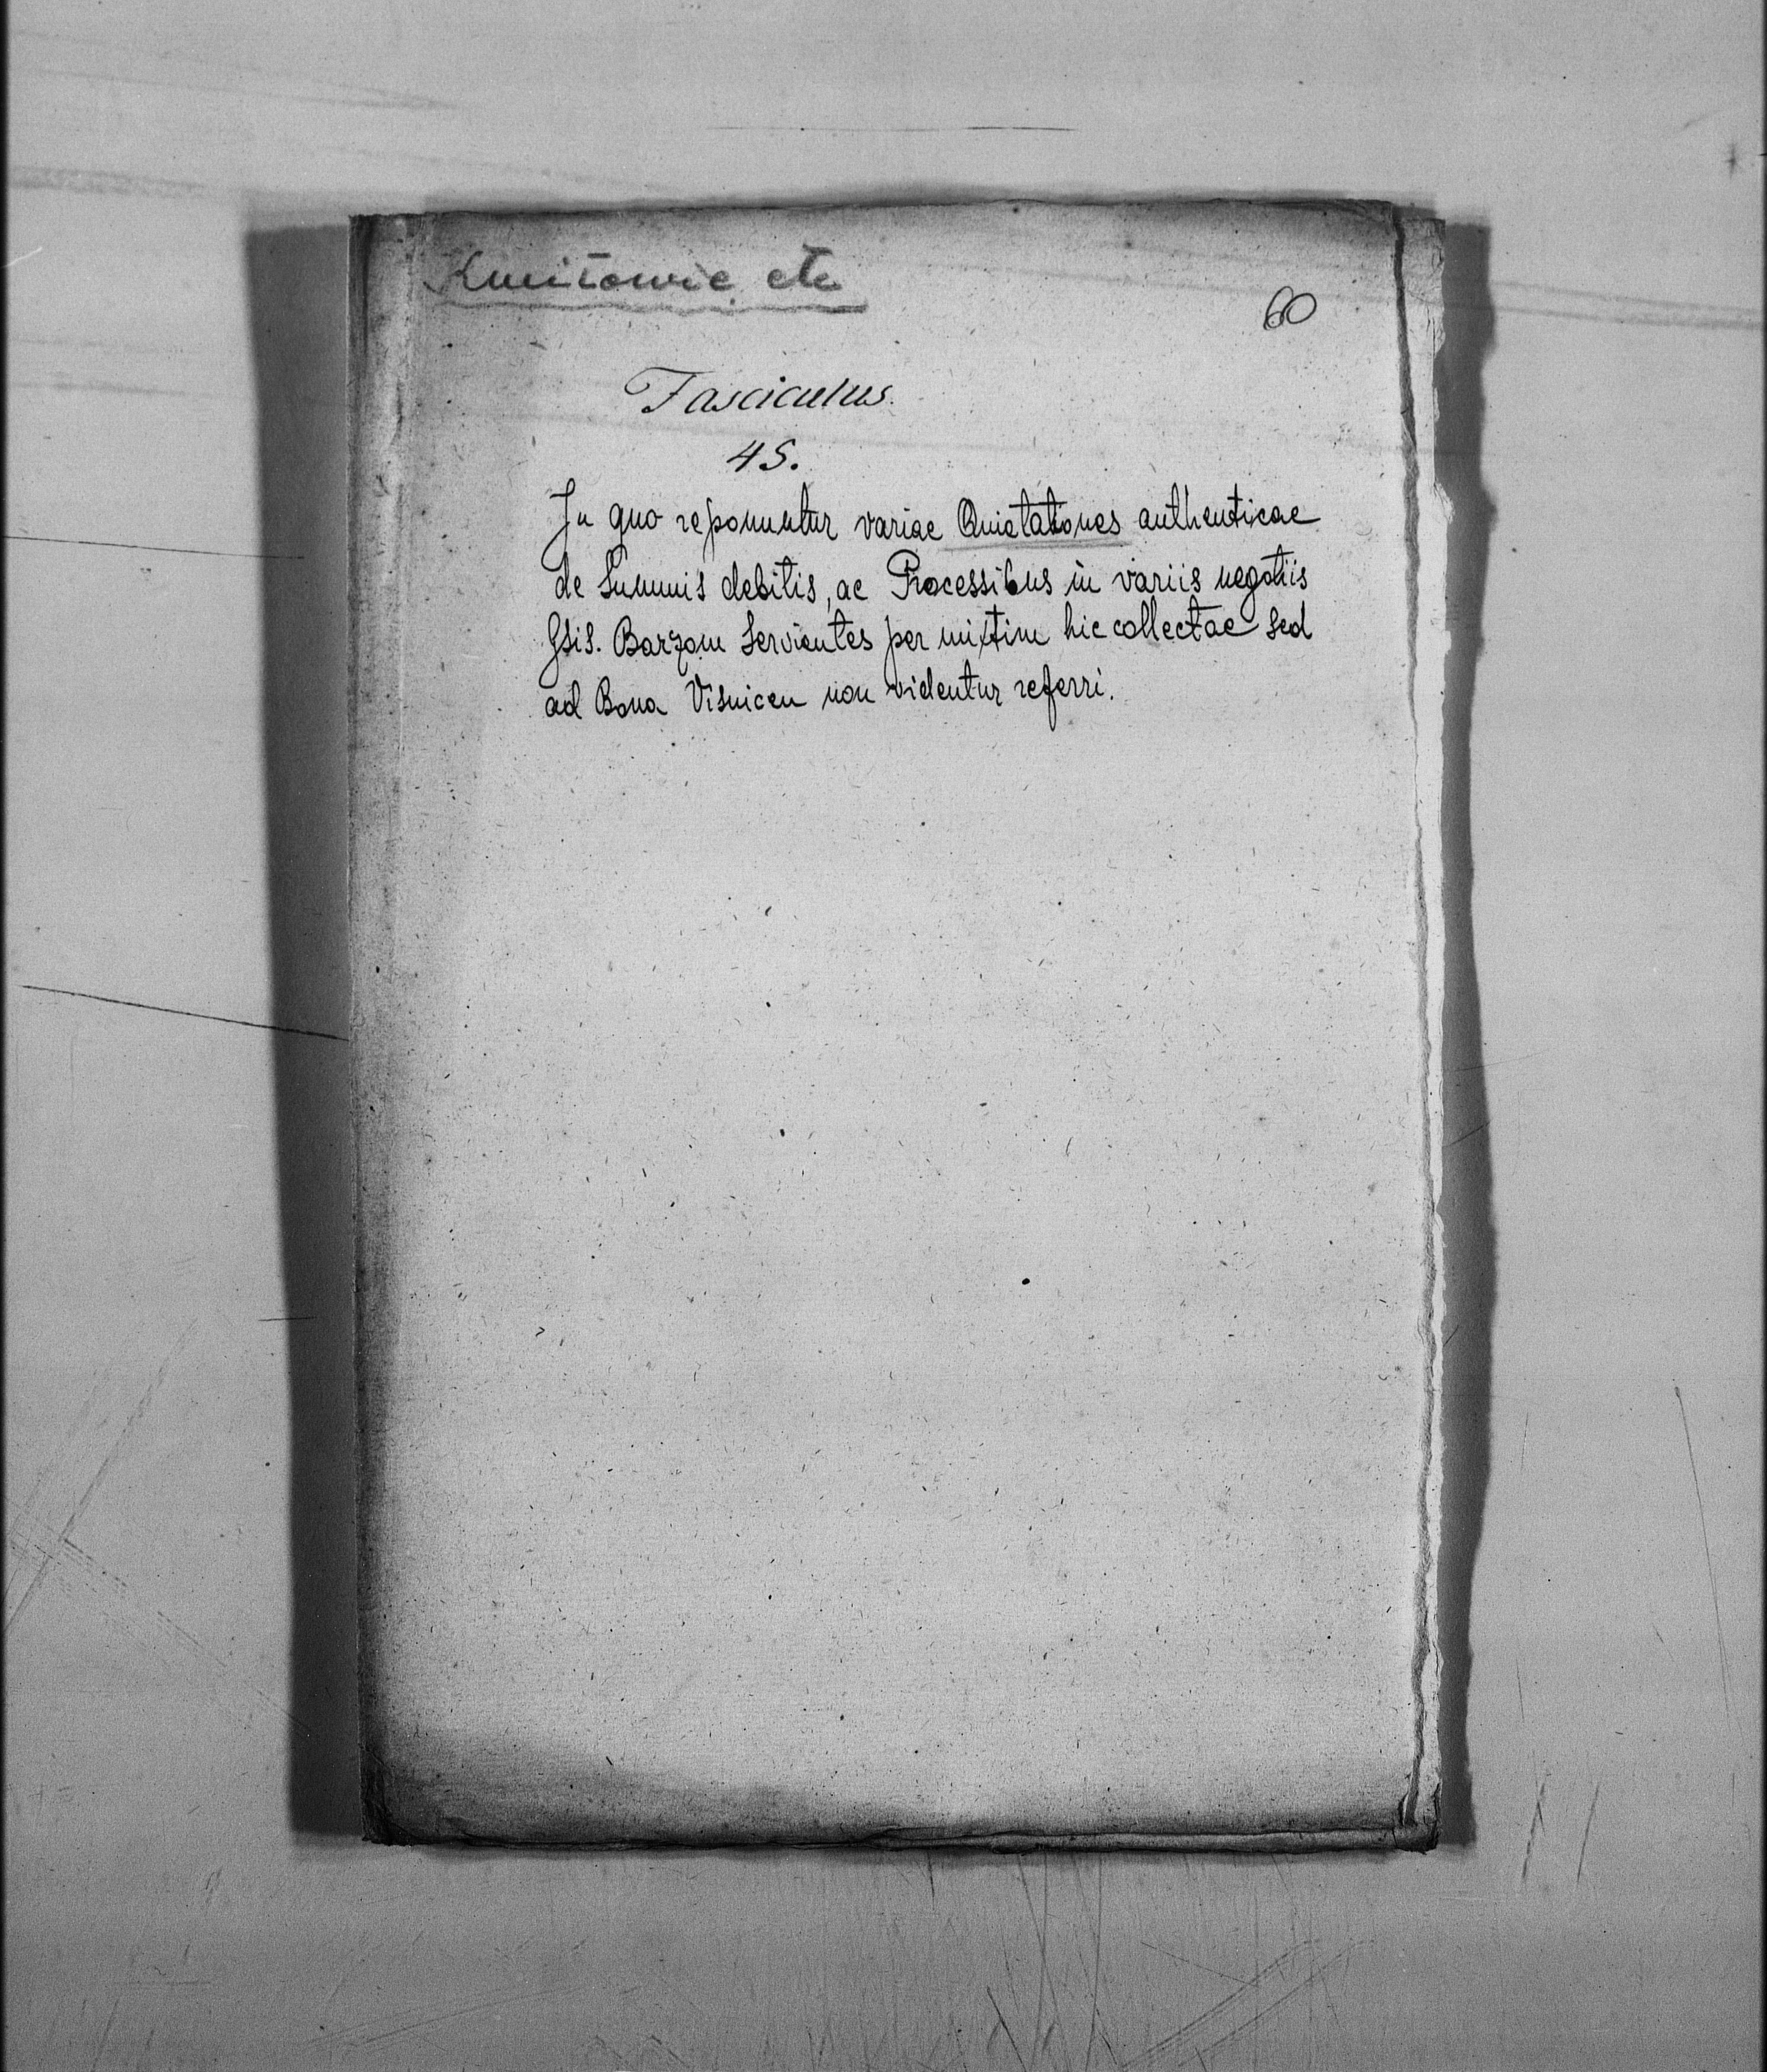 Kmitowie etc
60
Fasciculus.
45.
In quo reponuntur variae Quietationes authenticae
de Summis debitis, ac Processibus in variis negotiis
Gsis. Barzom Servientes per mixtim hic collectae sed
ad Bona Visnicen non videntur referri.